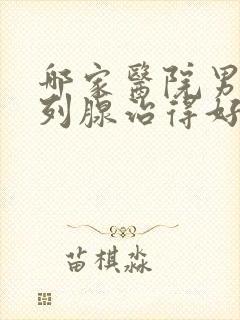 哪家醫院男
列腺治得好
苗棋淼